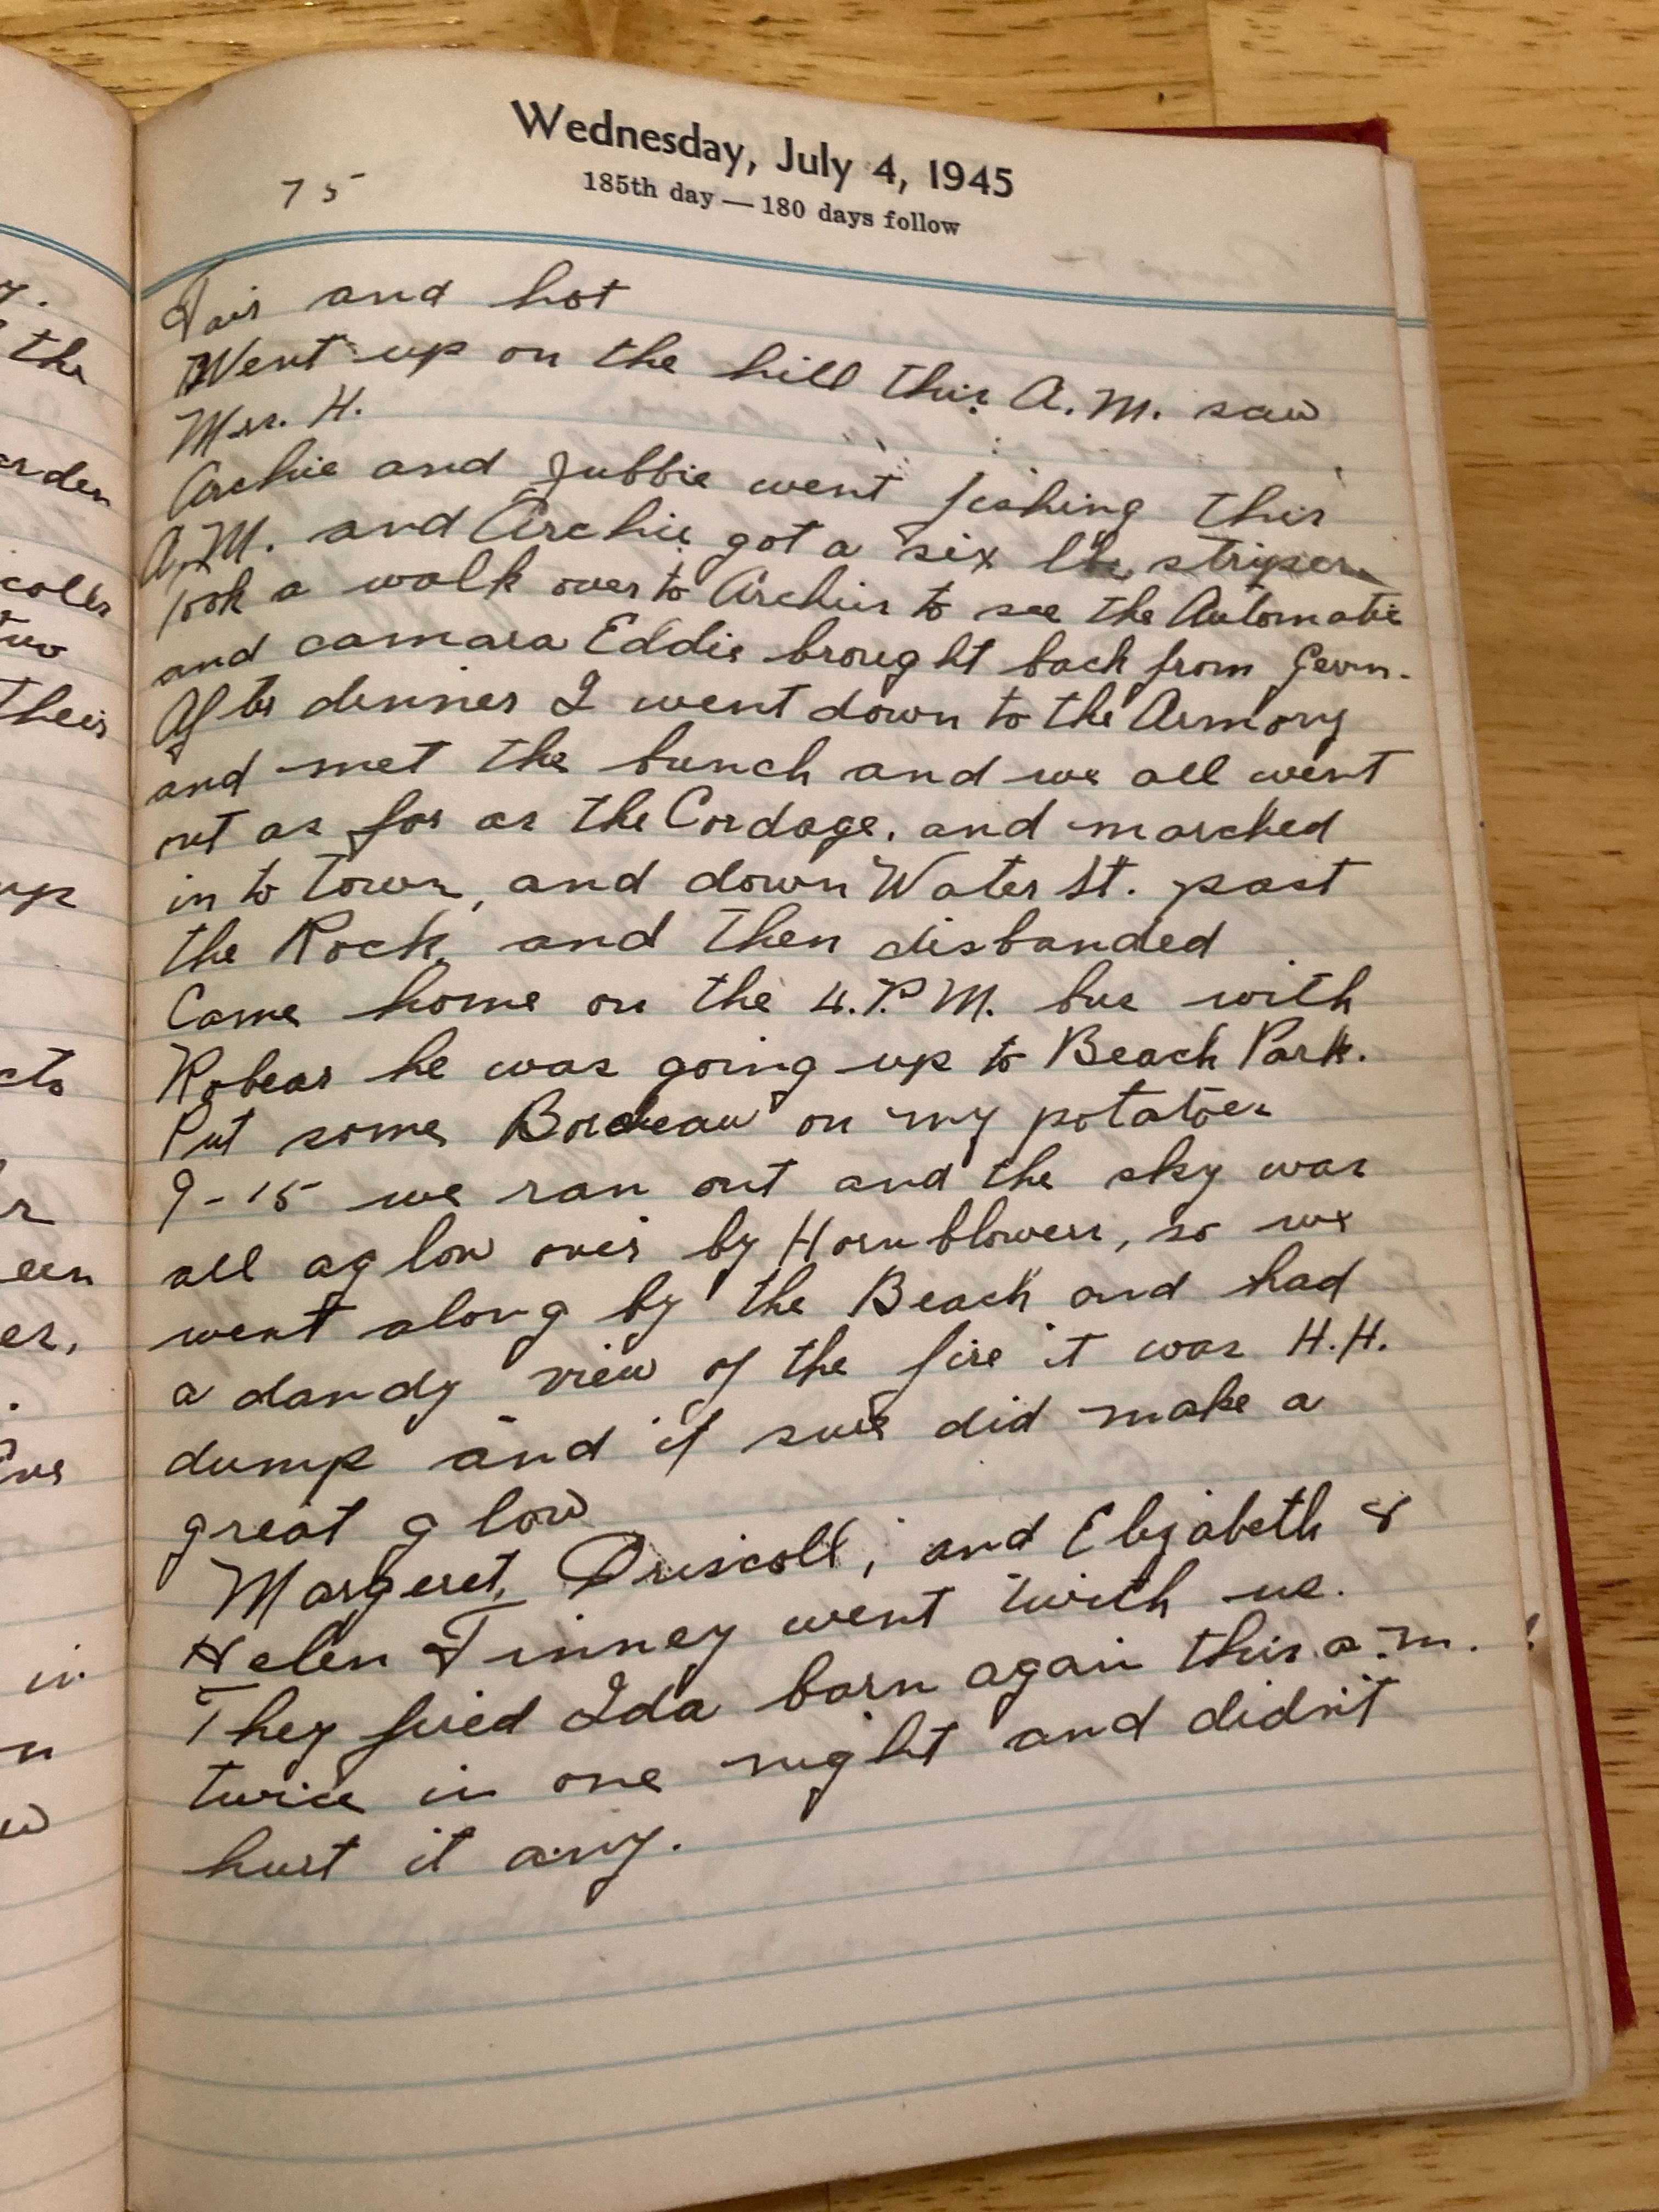 Wednesday, July 4, 1945
185th day — 180 days follow
75
Fair and hot
Went up on the hill this A.M. saw
Mrs. H.
Archie and Jubbie went fishing this
A.M. and Archie got a six lb. striper.
Took a walk over to Archies to see the Automatic
and camara Eddie brought back from Germ.
After dinner I went down to the Armory
and met the bunch and we all went
out as far as the Cordage. and marched
in to town, and down Water St. past
the Rock, and then disbanded
Came home on the 4.P.M. bus with
Robear he was going up to Beach Park.
Put some Bordeau on my potatoes
9-15 we ran out and the sky was
all aglow over by Hornblowers, so we
went along by the Beach and had
a dandy view of the fire it was H.H.
dump and it sure did make a
great glow
Margeret, Driscoll, and Elizabeth &
Helen Finney went with us.
They fired Ida barn again this a.m.
twice in one night and didn't
hurt it any.
7.
the
arden
colls
two
their
up
cts
een
er,
in
n
w